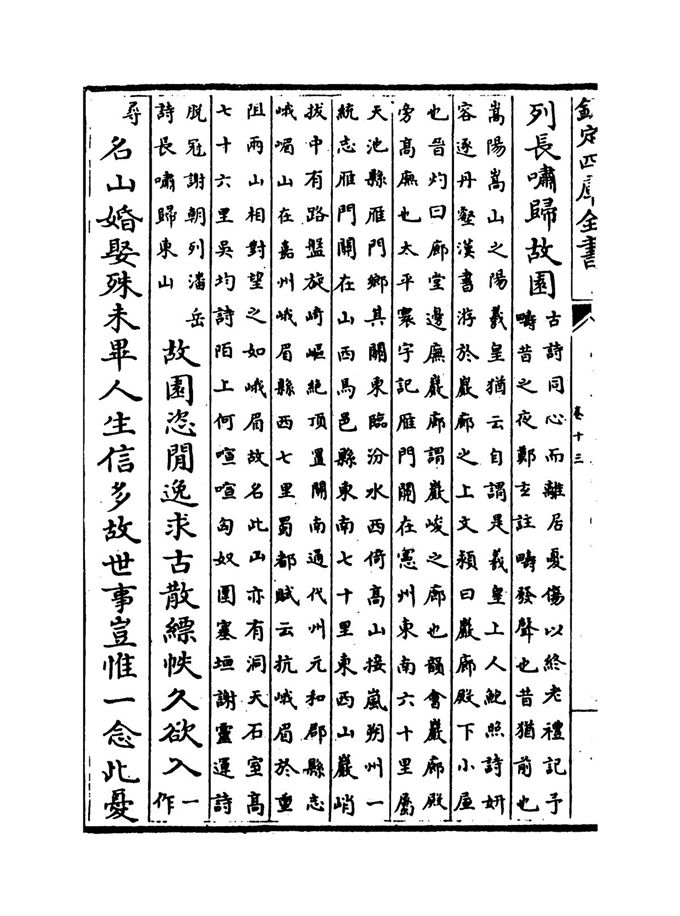 欽定四庫全書
卷十三
列長嘯歸故園
古詩同心而離居憂傷以終老禮記予
疇昔之夜鄭玄註疇發聲也昔猶前也
嵩陽嵩山之陽羲皇猶云自謂是羲皇上人鮑照詩妍
容逐丹壑漢書游於巖廊之上文穎曰巖廊殿下小屋
也晉灼曰廊堂邊廡巖廊謂巖峻之廊也韻會巖廊殿
旁高廡也太平寰宇記雁門關在憲州東南六十里屬
天池縣雁門鄉其關東臨汾水西倚高山接嵐朔州一
統志雁門關在山西馬邑縣東南七十里東西山巖峭
拔中有路盤旋崎嶇絶頂置關南通代州元和郡縣志
峨嵋山在嘉州峨眉縣西七里蜀都賦云抗峨眉於重
阻兩山相對望之如峨眉故名此山亦有洞天石室高
七十六里吳均詩陌上何喧喧匈奴圍塞垣謝靈運詩
脱冠謝朝列潘岳
詩長嘯歸東山
故園恣閒逸求古散縹帙久欲入
一
作
尋
名山婚娶殊未畢人生信多故世事豈惟一念此憂